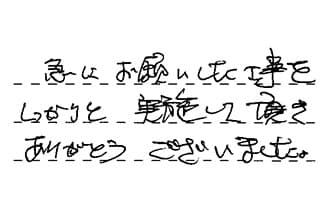 急にお願いした工事を
しっかりと実施して頂き
ありがとうございました。